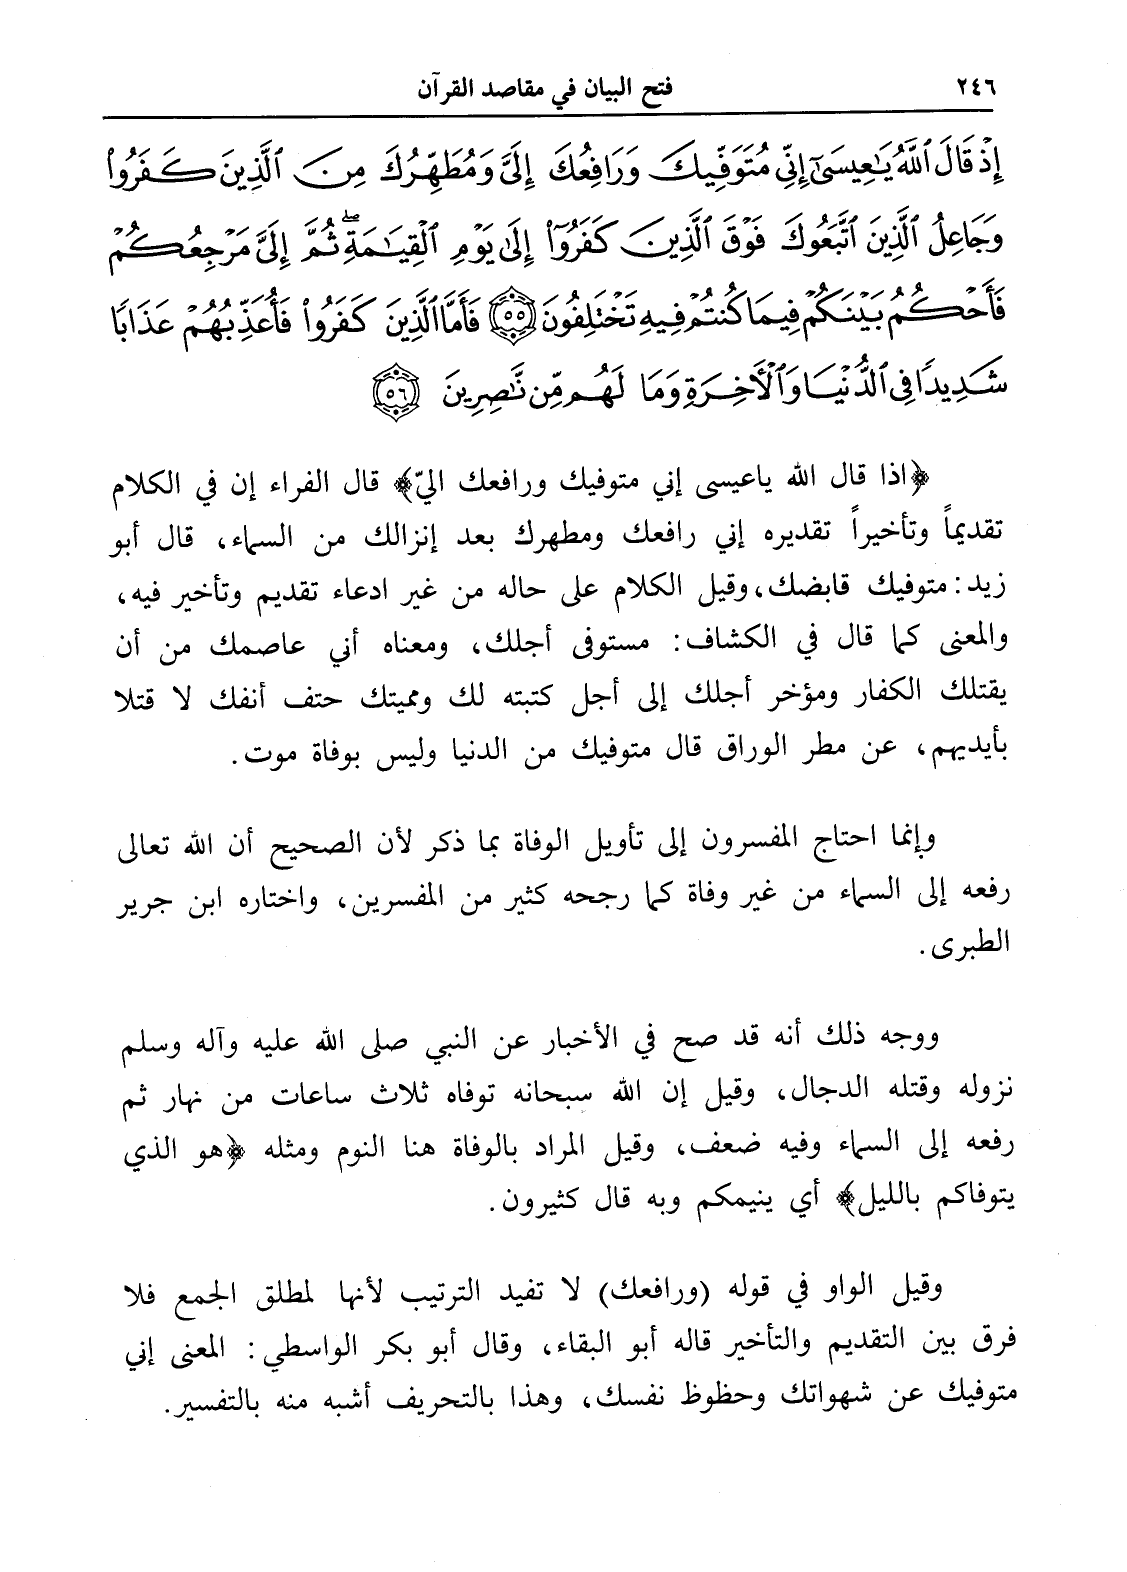 ٢٤٦ فتح البيان في مقاصد القرآن
إِذْ قَالَ ٱللَّهُ يَـٰعِيسَىٰٓ إِنِّى مُتَوَفِّيكَ وَرَافِعُكَ إِلَىَّ وَمُطَهِّرُكَ مِنَ ٱلَّذِينَ كَفَرُوا۟
وَجَاعِلُ ٱلَّذِينَ ٱتَّبَعُوكَ فَوْقَ ٱلَّذِينَ كَفَرُوٓا۟ إِلَىٰ يَوْمِ ٱلْقِيَـٰمَةِ ۖ ثُمَّ إِلَىَّ مَرْجِعُكُمْ
فَأَحْكُمُ بَيْنَكُمْ فِيمَا كُنتُمْ فِيهِ تَخْتَلِفُونَ ٥٥ فَأَمَّا ٱلَّذِينَ كَفَرُوا۟ فَأُعَذِّبُهُمْ عَذَابًا
شَدِيدًا فِى ٱلدُّنْيَا وَٱلْأَخِرَةِ وَمَا لَهُم مِّن نَّـٰصِرِينَ ٥٦
﴿اذا قال الله ياعيسى إني متوفيك ورافعك اليّ﴾ قال الفراء إن في الكلام
تقديماً وتأخيراً تقديره إني رافعك ومطهرك بعد إنزالك من السماء، قال أبو
زيد: متوفيك قابضك، وقيل الكلام على حاله من غير ادعاء تقديم وتأخير فيه،
والمعنى كما قال في الكشاف: مستوفى أجلك، ومعناه أني عاصمك من أن
يقتلك الكفار ومؤخر أجلك إلى أجل كتبته لك ومميتك حتف أنفك لا قتلا
بأيديهم، عن مطر الوراق قال متوفيك من الدنيا وليس بوفاة موت.
وإنما احتاج المفسرون إلى تأويل الوفاة بما ذكر لأن الصحيح أن الله تعالى
رفعه إلى السماء من غير وفاة كما رجحه كثير من المفسرين، واختاره ابن جرير
الطبرى.
ووجه ذلك أنه قد صح في الأخبار عن النبي صلى الله عليه وآله وسلم
نزوله وقتله الدجال، وقيل إن الله سبحانه توفاه ثلاث ساعات من نهار ثم
رفعه إلى السماء وفيه ضعف، وقيل المراد بالوفاة هنا النوم ومثله ﴿هو الذي
يتوفاكم بالليل﴾ أي ينيمكم وبه قال كثيرون.
وقيل الواو في قوله (ورافعك) لا تفيد الترتيب لأنها لمطلق الجمع فلا
فرق بين التقديم والتأخير قاله أبو البقاء، وقال أبو بكر الواسطي: المعنى إني
متوفيك عن شهواتك وحظوظ نفسك، وهذا بالتحريف أشبه منه بالتفسير.